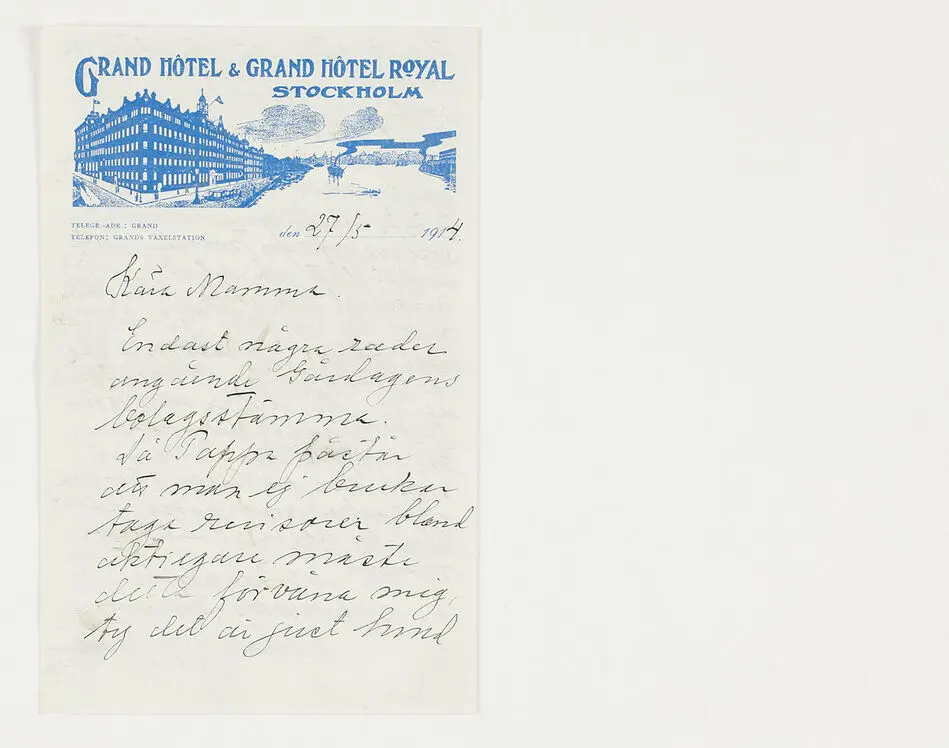 GRAND HÔTEL & GRAND HÔTEL ROYAL
STOCKHOLM
TELEGR.-ADR.: GRAND
TELEFON: GRANDS VÄXELSTATION
den 27/5 1914.
Kära Mamma.
Endast några rader
angående Gårdagens
bolagsstämma.
Då Pappa påstår
att man ej brukar
taga revisorer bland
aktiegare måste
detta förvåna mig,
ty det är just